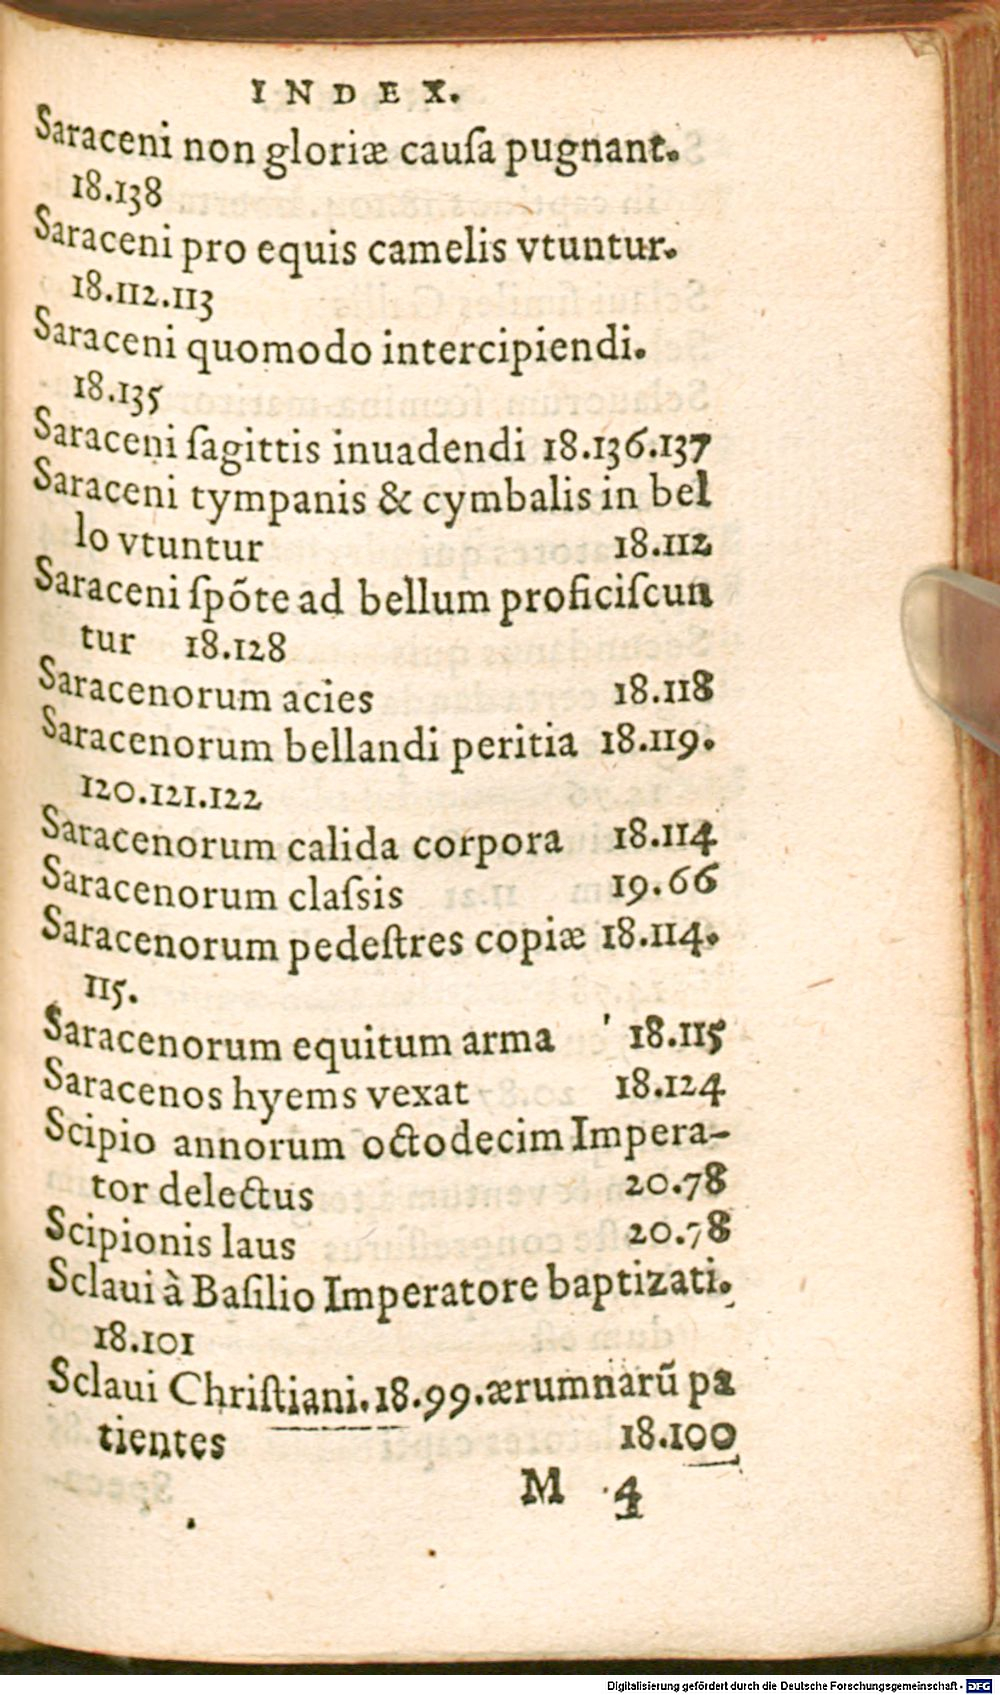 INDEX.
Saraceni non gloriæ cauſa pugnant.
18.138
Saraceni pro equis camelis vtuntur.
18.112.113
Saraceni quomodo intercipiendi.
18.135
Saraceni ſagittis inuadendi 18.136.137
Saraceni tympanis & cymbalis in bel
lo vtuntur 18.112
Saraceni ſpõte ad bellum proficiſcun
tur 18.128
Saracenorum acies 18.118
Saracenorum bellandi peritia 18.119.
120.121.122
Saracenorum calida corpora 18.114
Saracenorum claſsis 19.66
Saracenorum pedeſtres copiæ 18.114.
115.
Saracenorum equitum arma 18.115
Saracenos hyems vexat 18.124
Scipio annorum octodecim Impera-
tor delectus 20.78
Scipionis laus 20.78
Sclaui à Baſilio Imperatore baptizati.
18.101
Sclaui Chriſtiani.18.99.ærumnarũ pa
tientes 18.100
M 4
Digitalisierung gefördert durch die Deutsche Forschungsgemeinschaft - DFG